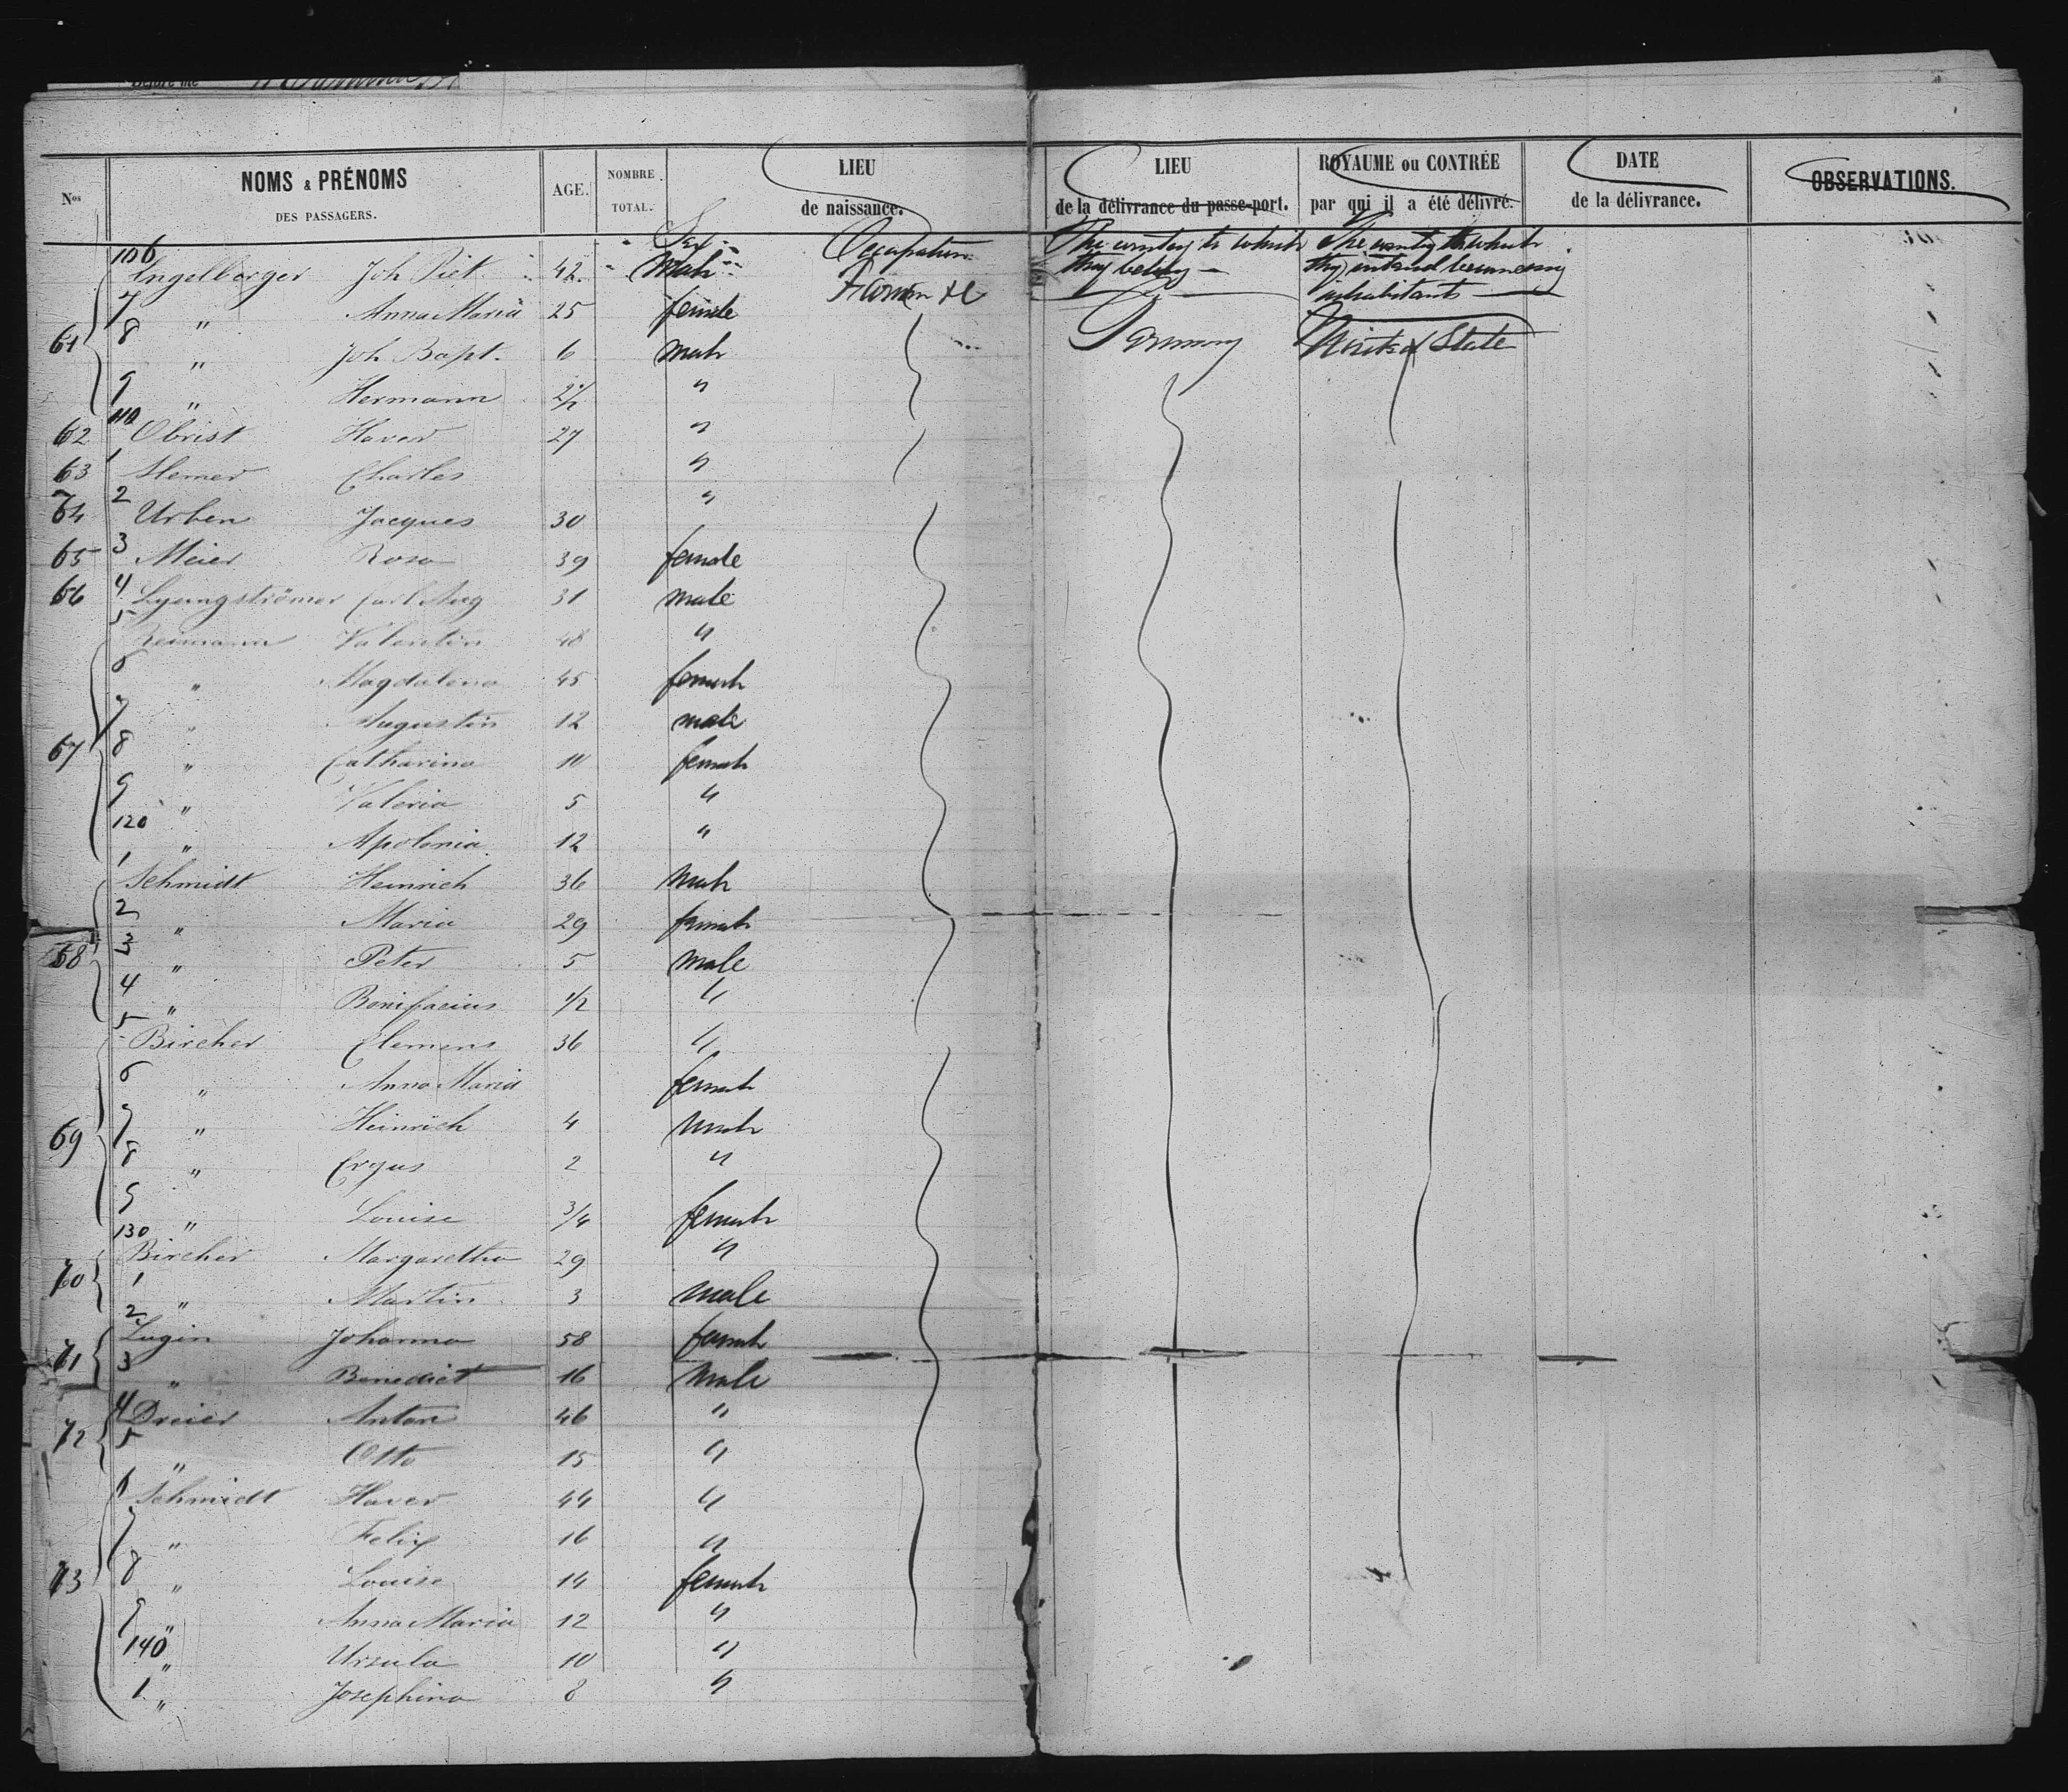 Before me
Nos NOMS & PRÉNOMS DES PASSAGERS. AGE. NOMBRE TOTAL. LIEU de naissance. LIEU de la délivrance du passe-port. ROYAUME ou CONTRÉE par qui il a été délivré. DATE de la délivrance. OBSERVATIONS.
Sex Occupation The country to which they belong The country to which they intend becoming inhabitants
61 106 Engelberger Joh Piet 42 Male Farmer &c
7 " Anna Maria 25 female Germany United State
8 " Joh Bapt. 6 male
9 " Hermann 2 1/2 "
62 110 Obrist Xaver 27 "
63 1 Charles "
64 2 Urben Jacques 30 "
65 3 Meier Rosa 39 female
66 4 Lyungströmer Carl Aug 31 male
67 5 Reimann Valentin 48 "
6 " Magdalena 45 female
7 " Augustin 12 male
8 " Catharina 10 female
9 " Valeria 5 "
120 " Apolonia 12 "
68 1 Schmidt Heinrich 36 male
2 " Maria 29 female
3 " Peter 5 male
4 " Bonifacius 1/2 "
69 5 Bircher Clemens 36 "
6 " Anna Maria female
7 " Heinrich 4 male
8 " 2 "
9 " Louise 3/4 female
70 130 Bircher Margaretha 29 "
1 " Martin 3 male
71 2 Lugin Johanna 58 female
3 " Benedict 16 male
72 4 Dreier Anton 46 "
5 " Otto 15 "
73 6 Schmidt Xaver 44 "
7 " Felix 16 "
8 " Louise 14 female
9 " Anna Maria 12 "
140 " Ursula 10 "
1 " Josephina 8 "